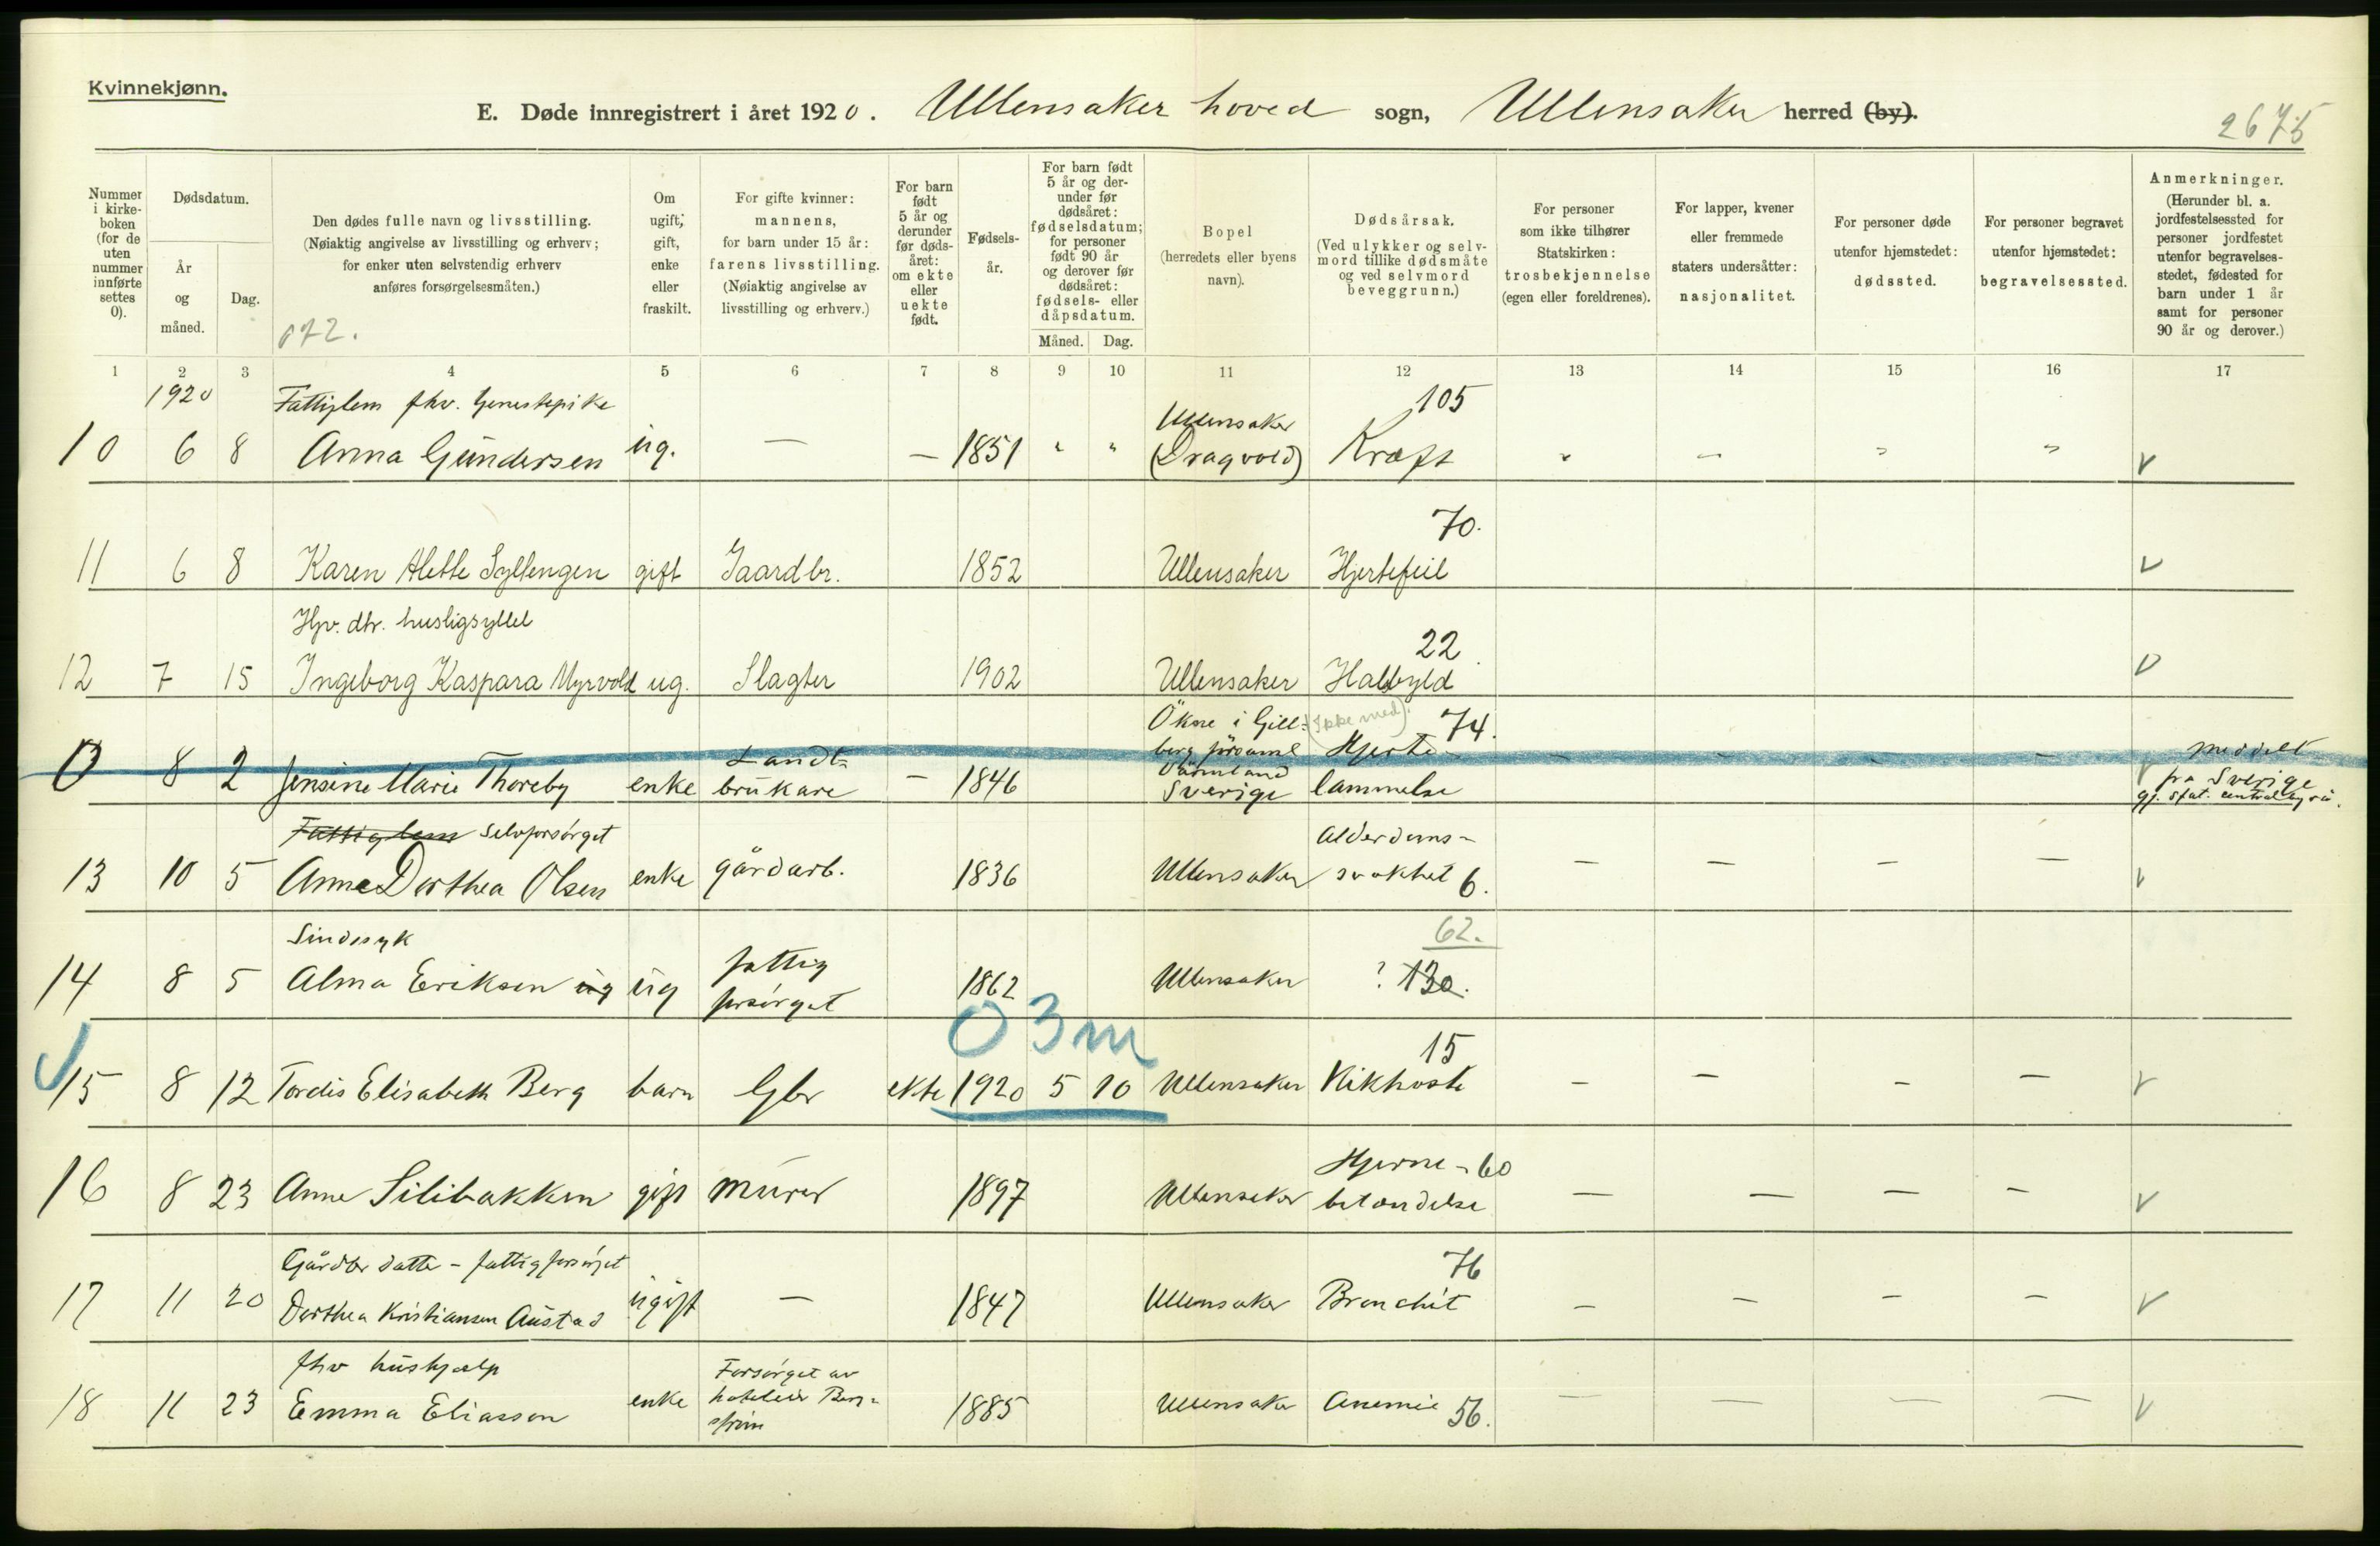 Kvinnekjønn.
E. Døde innregistrert i året 1920. Ullensaker hoved sogn, Ullensaker herred (by).
2675
Nummer i kirke-boken (for de uten nummer innførte settes 0).
Dødsdatum.
År og måned.
Dag.
Den dødes fulle navn og livsstilling.
(Nøiaktig angivelse av livsstilling og erhverv;
for enker uten selvstendig erhverv
anføres forsørgelsesmåten.)
072.
Om ugift, gift, enke eller fraskilt.
For gifte kvinner: mannens, for barn under 15 år: farens livsstilling. (Nøiaktig angivelse av livsstilling og erhverv.)
For barn født 5 år og derunder før døds-året: om ekte eller uekte født.
Fødsels-år.
For barn født 5 år og der-under før dødsåret: fødselsdatum; for personer født 90 år og derover før dødsåret: fødsels- eller dåpsdatum.
Måned. Dag.
Bopel (herredets eller byens navn).
Dødsårsak. (Ved ulykker og selv-mord tillike dødsmåte og ved selvmord beveggrunn.)
For personer som ikke tilhører Statskirken: trosbekjennelse (egen eller foreldrenes).
For lapper, kvener eller fremmede staters undersåtter: nasjonalitet.
For personer døde utenfor hjemstedet: dødssted.
For personer begravet utenfor hjemstedet: begravelsessted.
Anmerkninger. (Herunder bl. a. jordfestelsessted for personer jordfestet utenfor begravelses-stedet, fødested for barn under 1 år samt for personer 90 år og derover.)
1 2 3 4 5 6 7 8 9 10 11 12 13 14 15 16 17
1920 Fattiglem fhv. tjenestepike Ullensaker 105
10 6 8 Anna Gundersen ug. — — 1851 " " (Dragvold) Kræft " — " " V
70.
11 6 8 Karen Alette Syllengen gift Gaardbr. 1852 Ullensaker Hjertefeil V
Hjv. dtr. husligsyssel 22
12 7 15 Ingeborg Kaspara Myrvold ug. Slagter 1902 Ullensaker Halsbyld V
Ökne i Gill- (Ikke med). 74.
Landt- berg församl Hjerte- meddelt
0 8 2 Jensine Marie Thoreby enke brukare — 1846 Värmland Sverige lammelse fra Sverige
gj. stat. centralbyrå.
Fattiglem selvforsørget Alderdoms-
13 10 5 Anne Dorthea Olsen enke gårdarb. 1836 Ullensaker svakhet 6. — — — — V
Sindssyk 62.
14 8 5 Alma Eriksen ug ug fattig forsørget 1862 Ullensaker ? 130.
0 3 m
15
15 8 12 Tordis Elisabeth Berg barn Gbr ekte 1920 5 10 Ullensaker Kikhoste — — — — V
Hjerne- 60
16 8 23 Anne Silibakken gift murer 1897 Ullensaker betændelse — — — — V
Gårdbr datter - fattigforsørget 76
17 11 20 Dorthea Kristiansen Austad ugift — 1847 Ullensaker Bronchit — — — — V
fhv hushjælp Forsørget av
18 11 23 Emma Eliasson enke 1885 Ullensaker Anemie 56. — — — — V